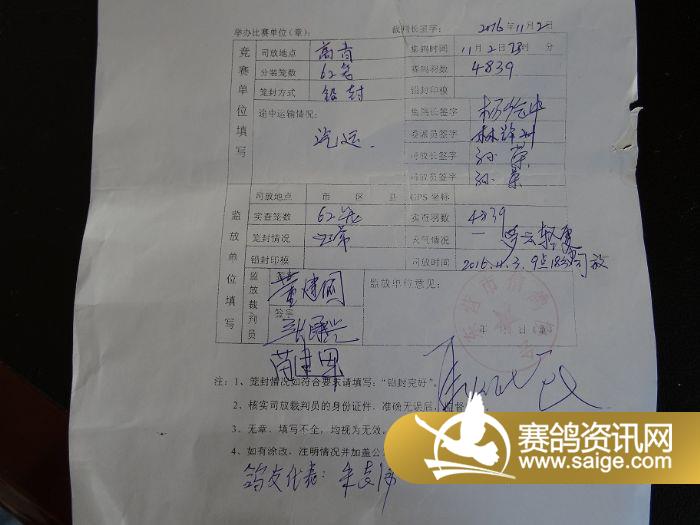 举办比赛单位（章）： 裁判长签字： 2016年11月2日
竞赛单位填写
司放地点 高青 集鸽时间 11月2日 分
分装笼数 62笼 赛鸽羽数 4839
笼封方式 铅封 铅封印模
途中运输情况： 集鸽长签字
汽运. 委派员签字
司放长签字 孙荣
司放员签字 孙
监放单位填写
司放地点 市 区 县 GPS 坐标
实查笼数 62笼 实查羽数 4839
笼封情况 正常 天气情况
笼封印模 司放时间 2016.11.3.9点18分司放
监放裁判员 签字 董建国 监放印章意见：
签字
苗建国 年 月 日（章）
注：1、笼封情况如符合要求请填写：“铅封完好”。
2、核实司放裁判员的身份证件，准确无误后，
3、无章、填写不全，均视为无效。
4、如有涂改，注明情况并加盖公
鸽友代表：
赛鸽资讯网
www.saige.com